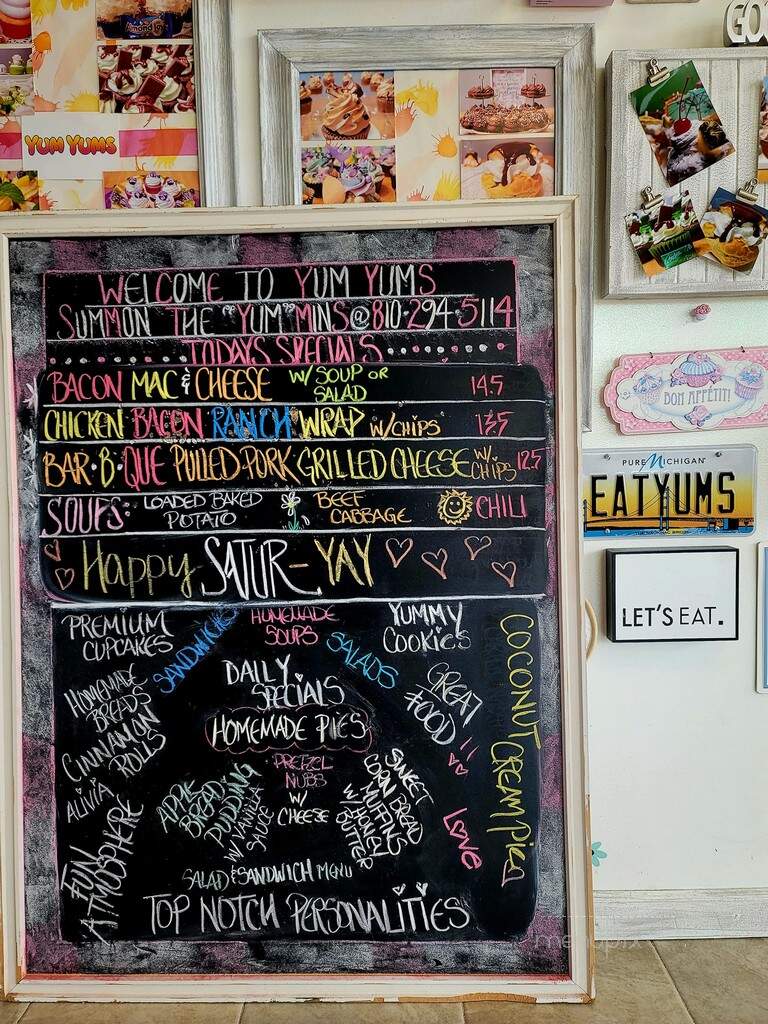 YUM YUMS
Almond Joy
GOO
WELCOME TO YUM YUMS
SUMMON THE "YUM"MINS@810·294·5114
TODAYS SPECIALS
BACON MAC & CHEESE W/ SOUP OR SALAD 14.5
CHICKEN BACON RANCH WRAP W/CHIPS 13.5
BAR·B·QUE PULLED PORK GRILLED CHEESE W/ CHIPS 12.5
SOUPS: LOADED BAKED POTATO BEEF CABBAGE CHILI
Happy SATUR-YAY
PREMIUM CUPCAKES
SANDWICHES
HOMEMADE SOUPS
SALADS
YUMMY COOKIES
HOMEMADE BREADS
DAILY SPECIALS
GREAT FOOD!!
COCONUT CREAM PIE
CINNAMON ROLLS
HOMEMADE PIES
ALIVIA
APPLE BREAD PUDDING W/ VANILLA SAUCE
PRETZEL NUBS W/ CHEESE
SWEET CORN BREAD MUFFINS W/ HONEY BUTTER
LOVE
FUN ATMOSPHERE
SALAD & SANDWICH MENU
TOP NOTCH PERSONALITIES
BON APPÉTIT!
PURE MICHIGAN
EATYUMS
LET'S EAT.
menupix